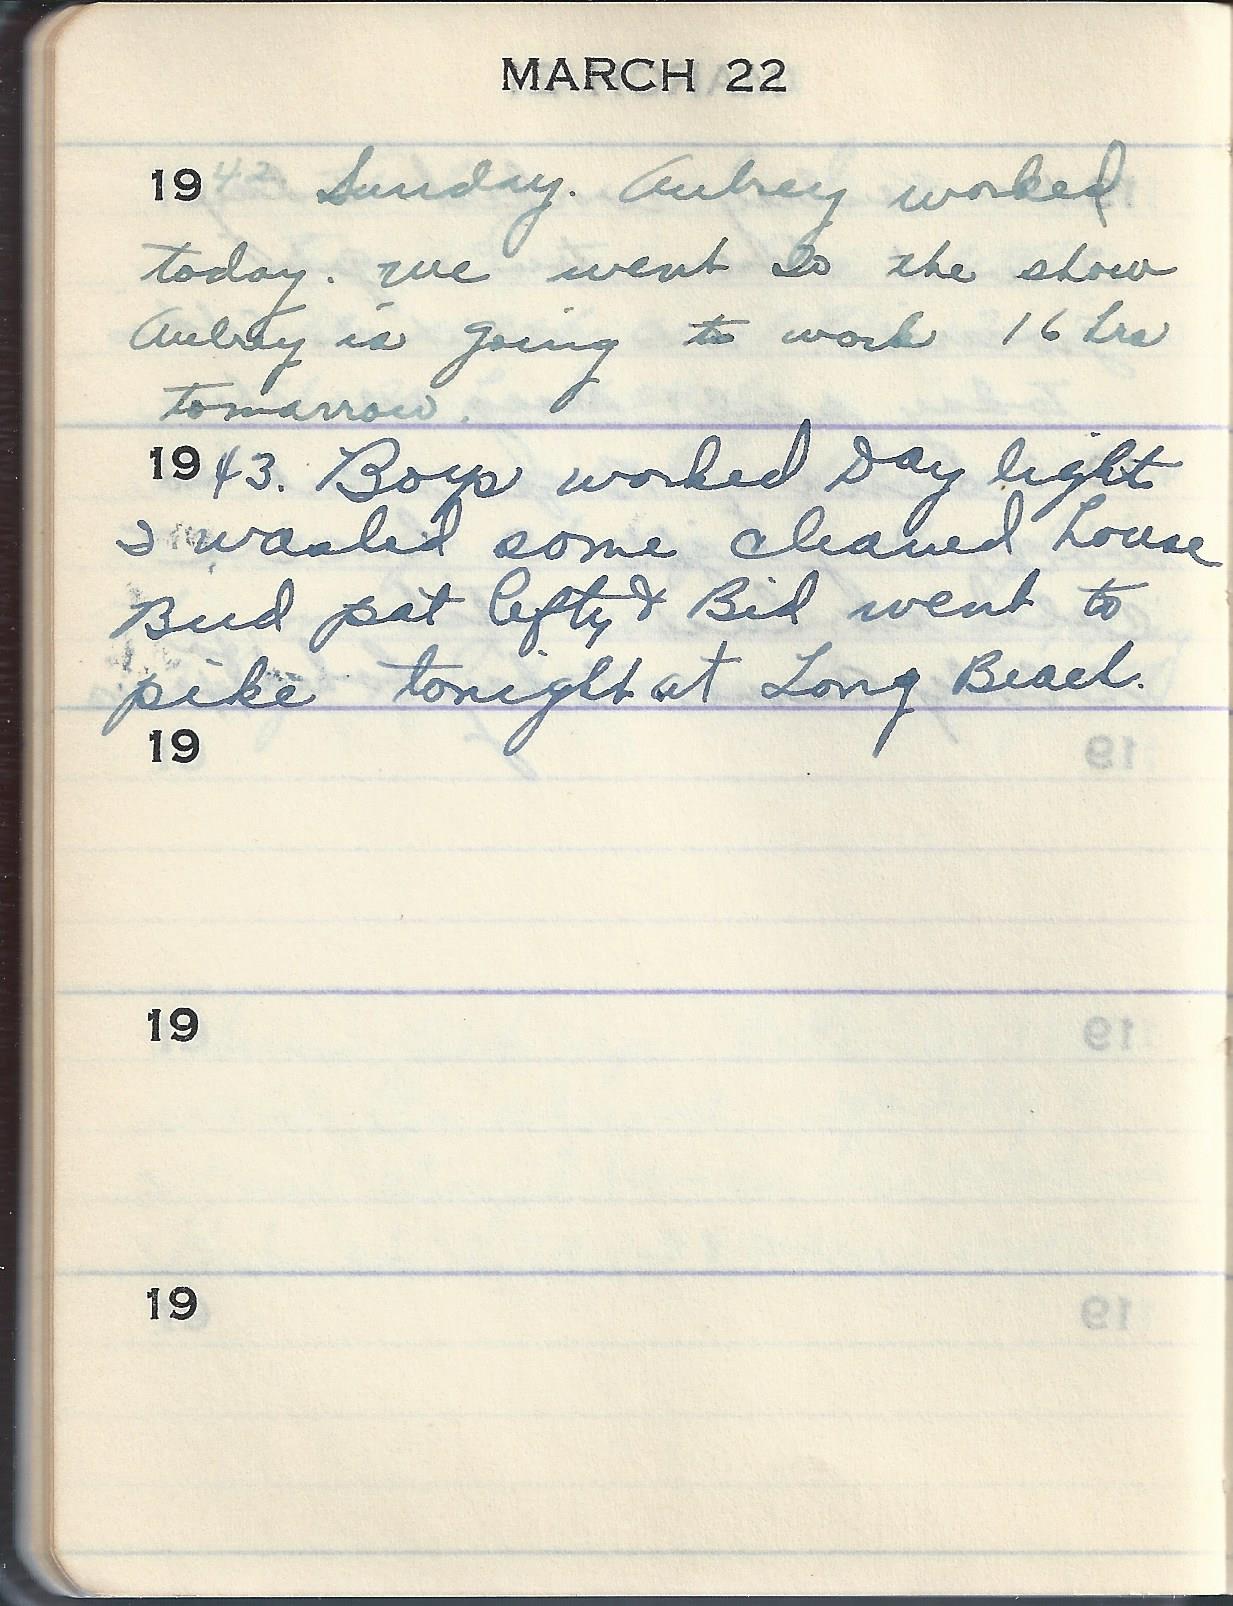 MARCH 22
1942 Sunday. Aubrey worked
today. we went to the show
Aubrey is going to work 16 hrs
tomarrow.
1943. Boys worked Day light
I washed some cleaned house
Bud pat lefty & Bid went to
pike tonight at Long Beach.
19
19
19